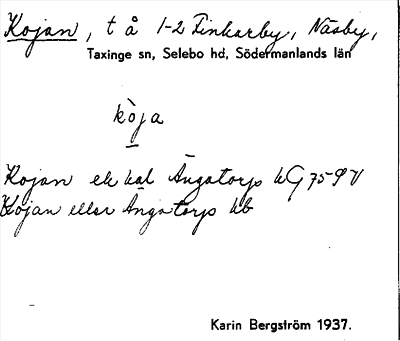 Kojan, t å 1-2 Finkarby, Näsby,
Taxinge sn, Selebo hd, Södermanlands län
kòja
Kojan el kal Ängatorp kG 75 9 V
Kojan eller Ängatorp kb
Karin Bergström 1937.